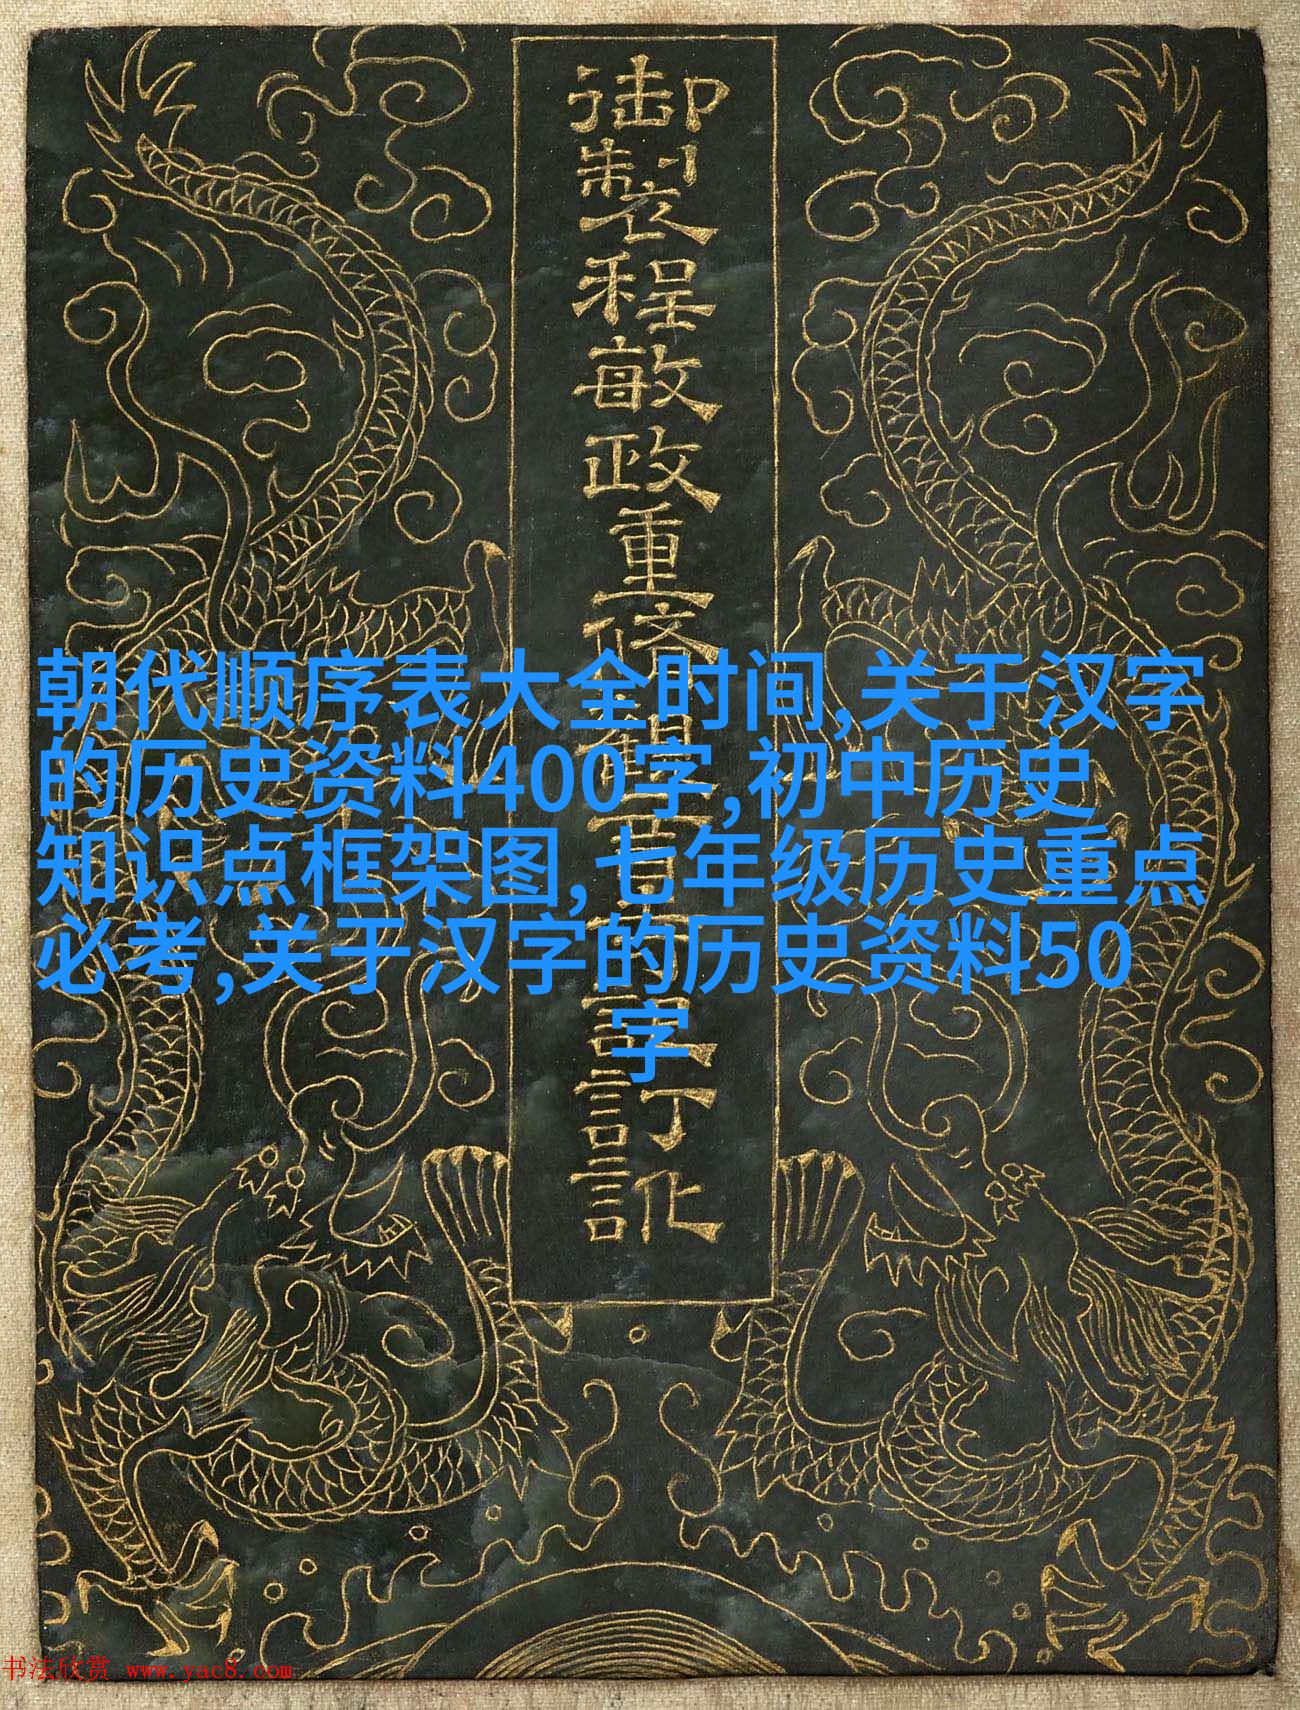 御製程敏政重修訂訛
朝代顺序表大全时间,关于汉字
的历史资料400字,初中历史
知识点框架图,七年级历史重点
必考,关于汉字的历史资料50
字
书法欣赏 www.yac8.com